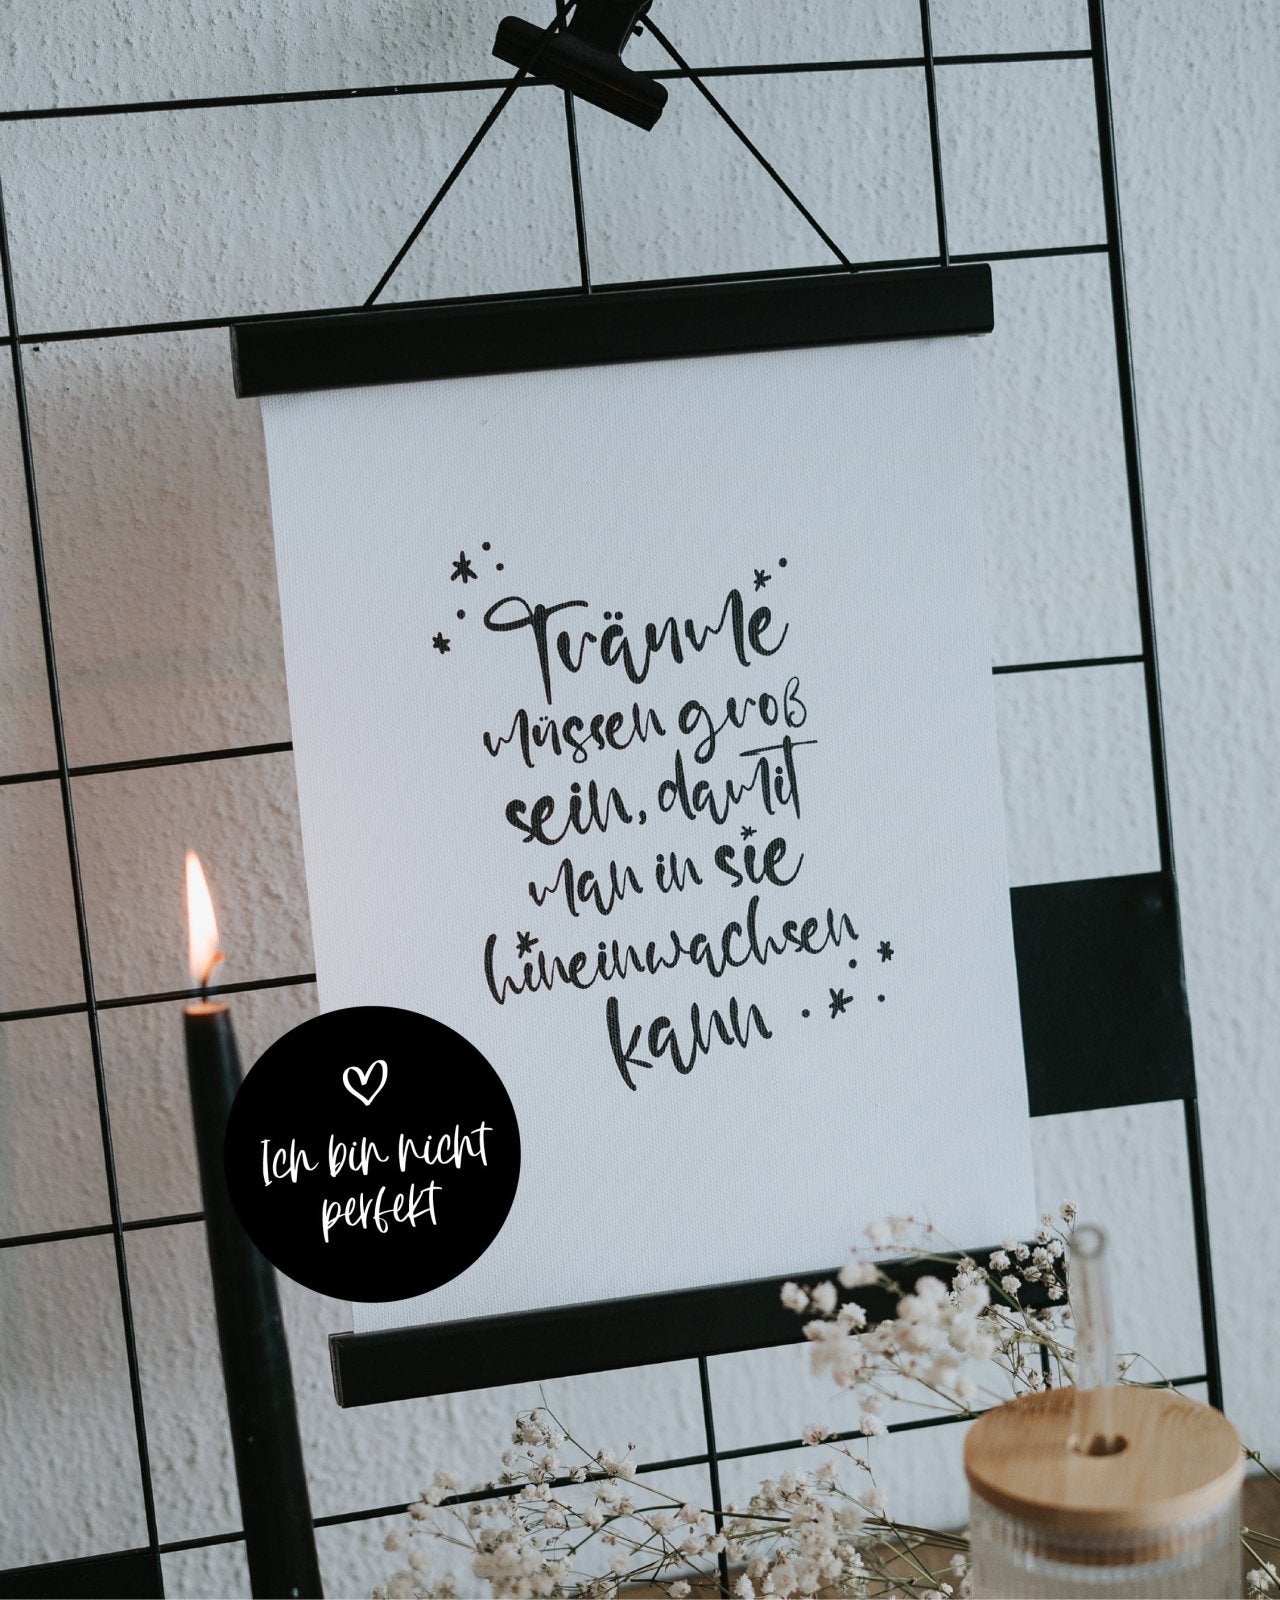 Träume
müssen groß
sein, damit
man in sie
hineinwachsen
kann
Ich bin nicht
perfekt